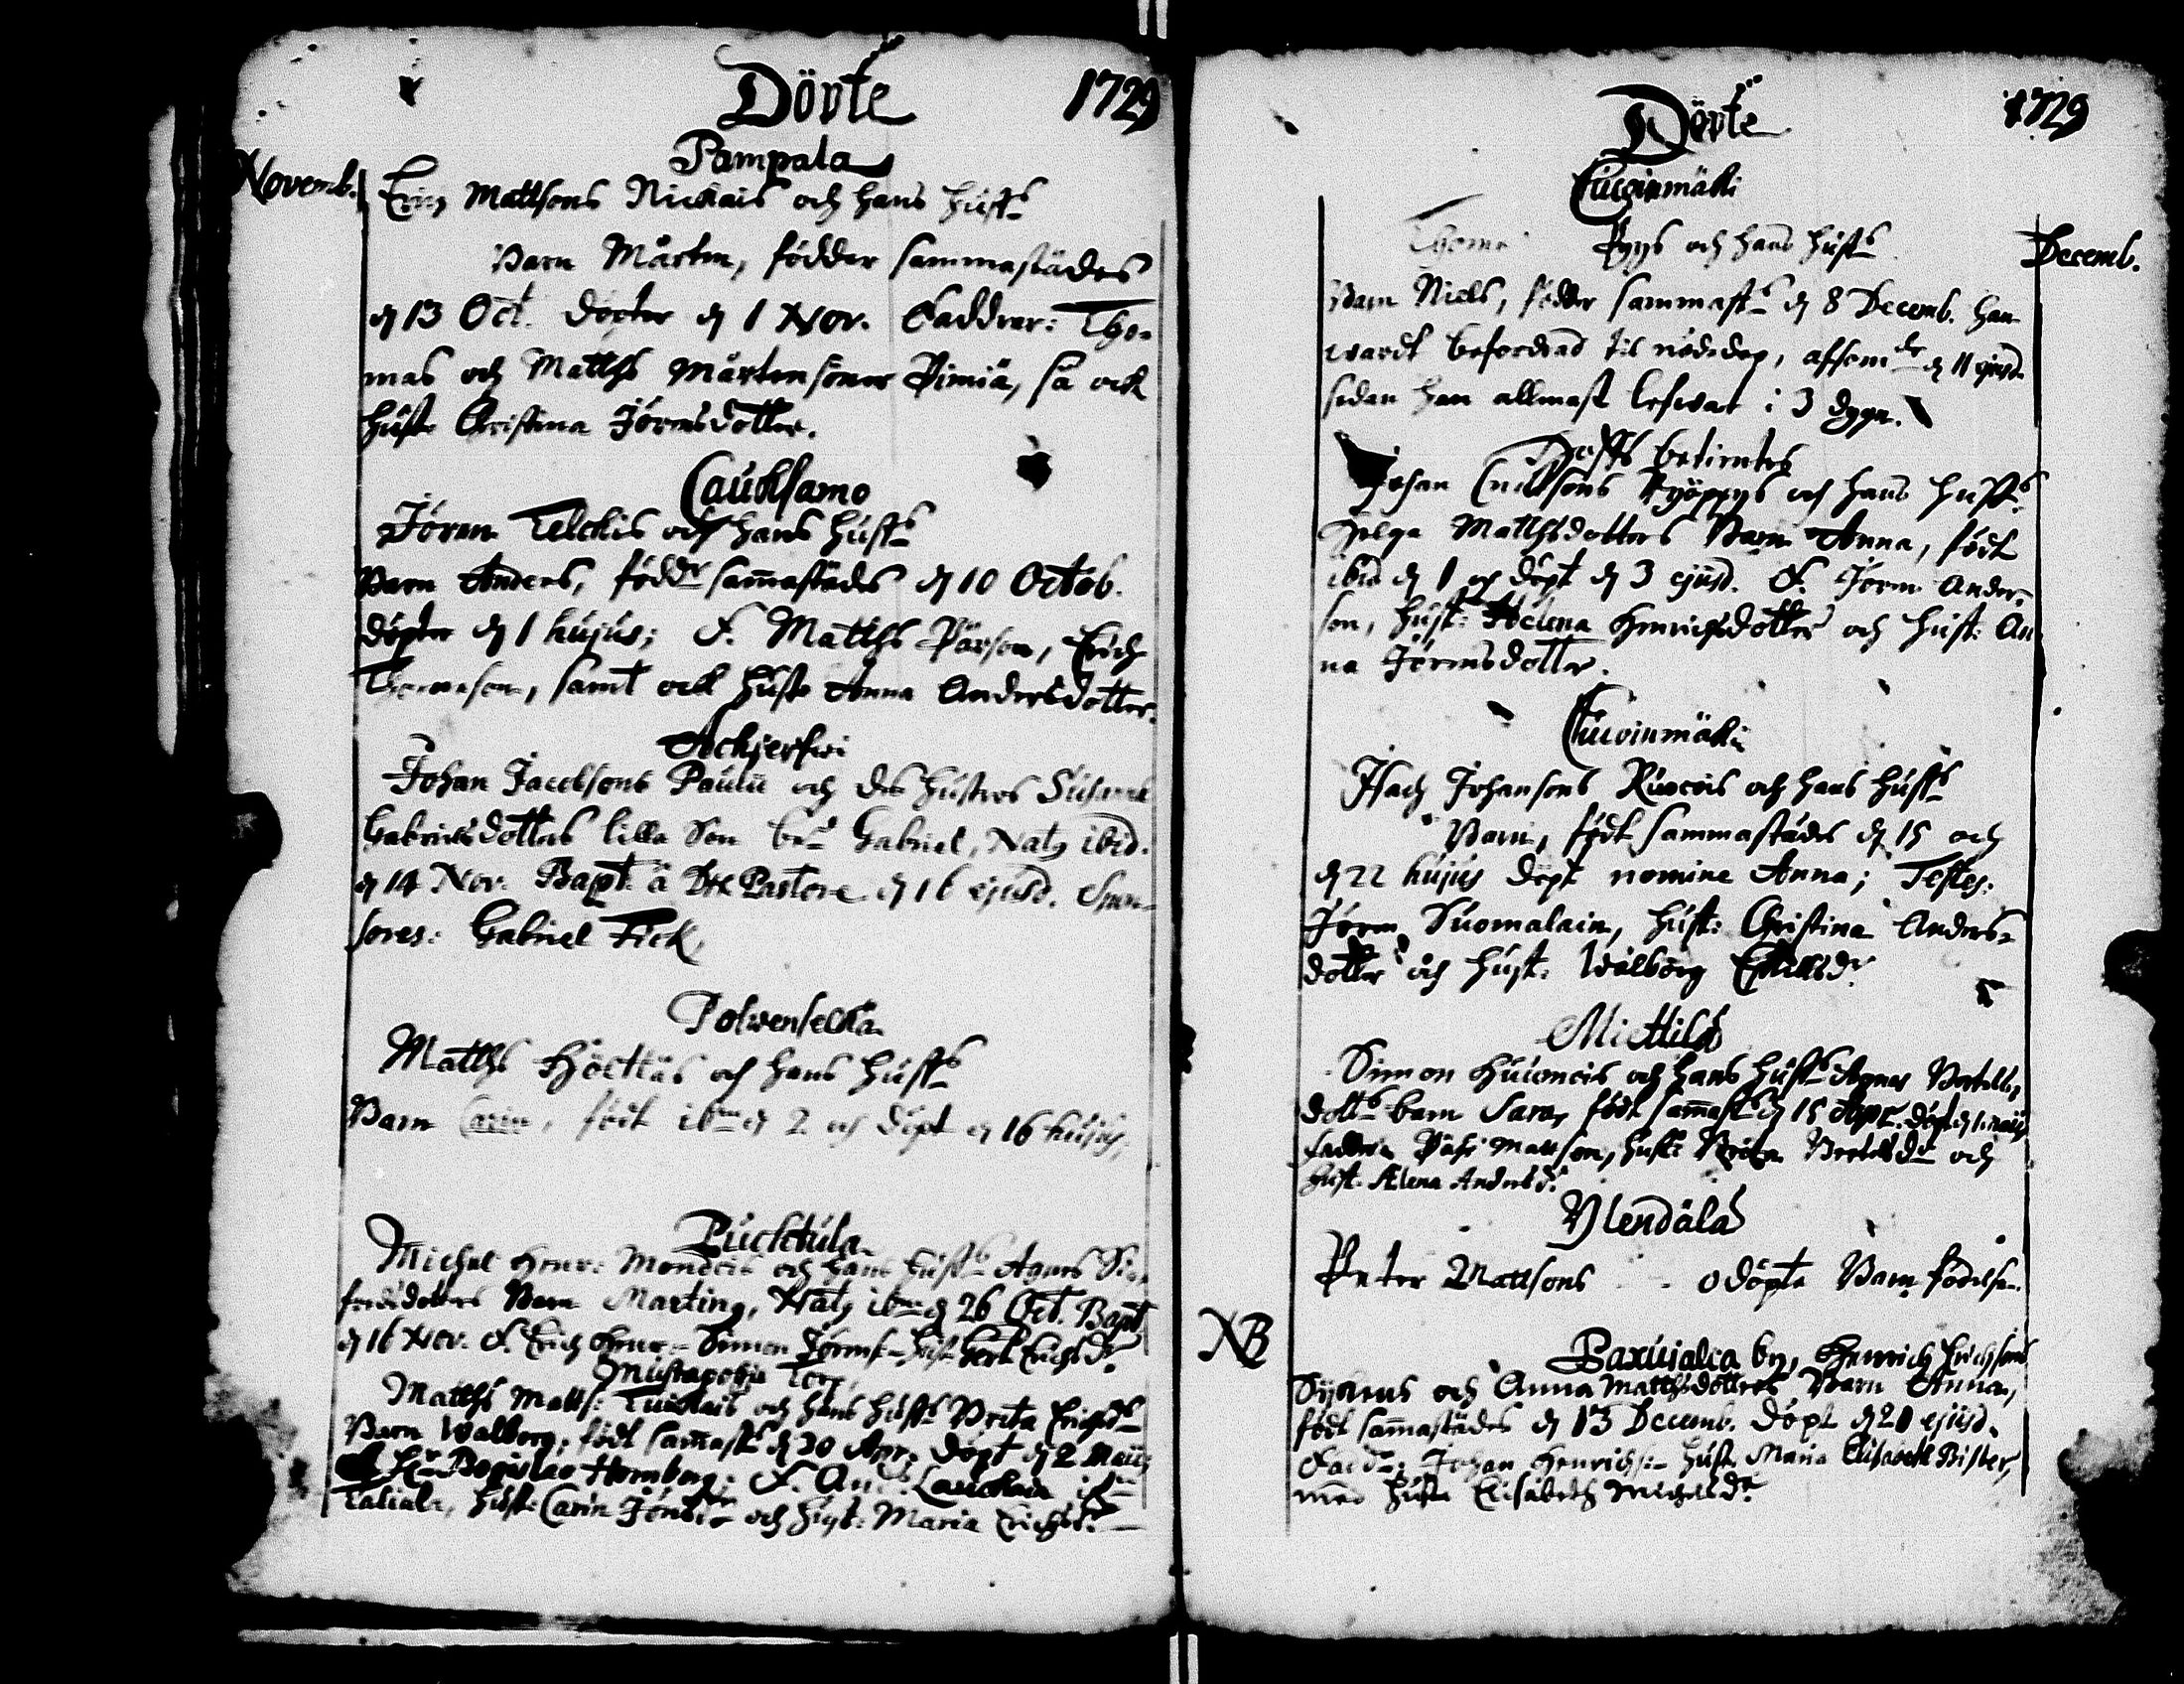 Döpte 1729
Pampala
Novemb. Erich Mattsons Nickais och hans hust:s
Barn Mårten, födder sammastädes
d 13 Oct. döpter d 1 Nov. Faddrar: Tho-
mas och Matths Mårtensöner Pimiä, så ock
hust: Christina Jörensdotter.
Caucksamo
Jören Telckis och hans hust:s
Barn Anders, född:r sam̄astädes d 10 Octob.
döpter d 1 hujus; F. Matths Pärson, Erich
Thomason, samt ock hust: Anna Andersdotter.
Achjerfwi
Johan Jacobsons Paulü och des hustros Susanna
Gabrielsdotters lilla Son be:d Gabriel, Nat9 ibid.
d 14 Nov. Bapt. à Dn Pastore d 16 ejusd. Spon-
sores: Gabriel Fick,
Polwenselkä
Matths Höltläs och hans hust:s
Barn Carin, födt ib:m d 2 och döpt d 16 hujus,
Pucktula
Michel Henr: Mondois och hans hust:s Agnes Si-
fredsdotters Barn Marting, Nat9 ib:m d 26 Oct. Bapt.
d 16 Nov. F. Erich Henr:- Simon Jörens:- hust: Gert. Erichsd:r
Mustapohja Torp
Matths Matts: Tuickais och hans hust:s Brita Erichsd:s
Barn Walborg, födt sam̄ast:s d 30 Apr. döpt d 2 Maij
af H:r Bogislao Hornborg: F. And: Lauckain
Taliala, hust: Carin Jönsd:r och hust: Maria Erichsd:r
Döpte 1729
Chuoinmäki
Thoma Pyys och hans hust:s Decemb.
Barn Niels, födder sammast:s d 8 Decemb. han
wardt befordrad til nöddop, afsom:de d 11 ejusd.
sedan han allenast lefwat i 3 dygn.
Johan Cnutsons Pyöppys och hans hust:s
Helga Matthsdotters Barn Anna, födt
ibid d 1 och döpt d 3 ejusd. F. Jören Anders-
son, hust: Helena Henrichsdotter och hust: An
na Jörensdotter.
Chuoinmäki
Isach Johansons Ruocois och hans hust:s
Barn, födt sammastädes d 15 och
d 22 hujus döpt nomine Anna; Testes:
Jören Suomalain, hust: Christina Anders-
dotter och hust: Walborg Eskillsd:r
Miettilä
Simon Huuoneis och hans hust:s Agnes Bertills
dott:s barn Sara, födt sam̄ast:s d 15 Apr. döpt d 1 Maij
Faddrar Påhl Mattson, hust: Brita Bertelsd:r och
hust. Ælena Andersd:r
Ylendälä
Peter Mattsons odöpta Barn födelse.
NB Paxuialca by, Henrich Erichsons
Syörens och Anna Matthsdotters Barn Anna,
födt sam̄astädes d 13 Decemb. döpt d 21 ejusd.
Fadd:r: Johan Henrichs:- hust: Maria Elisabeth Bister,
med hust: Elisabeth Michelsd:r